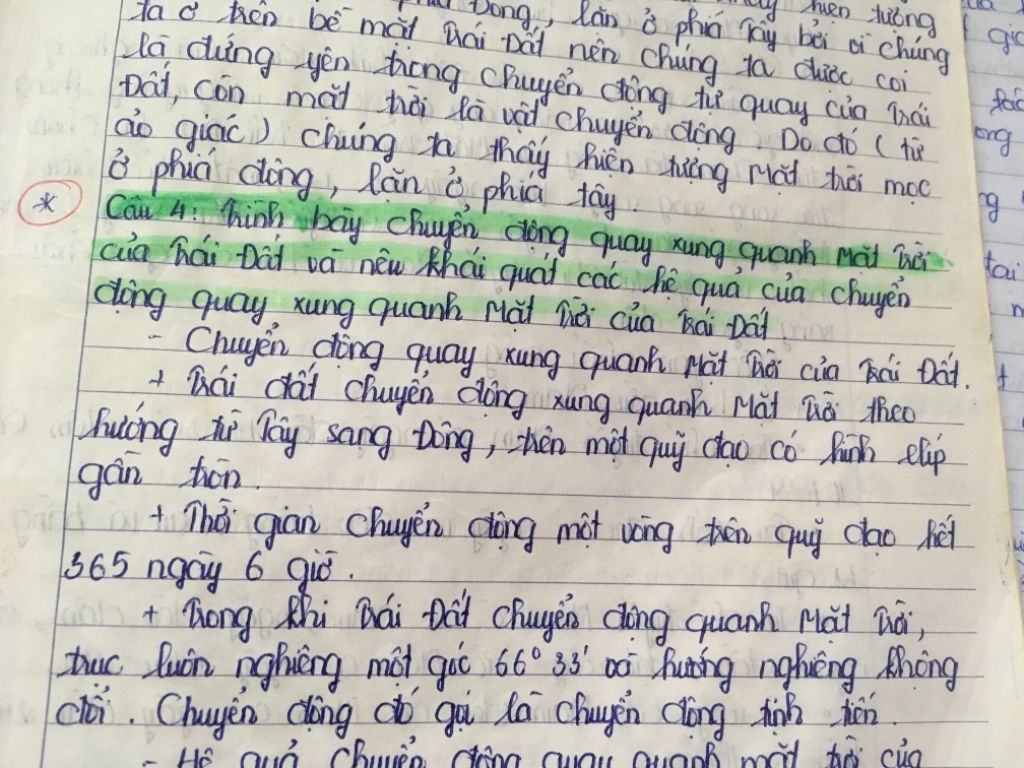 ta ở trên bề mặt Trái Đất Đông, lặn ở phía Tây bởi vì chúng hiện tượng
là đứng yên trong chuyển nên chúng ta được coi
Đất, còn mặt trời là vật chuyển động tự quay của Trái
ảo giác) chúng ta thấy hiện tượng Mặt trời mọc Do đó (từ
ở phía đông, lặn ở phía tây.
*
Câu 4: Trình bày chuyển động quay xung quanh Mặt Trời
của Trái Đất và nêu khái quát các hệ quả của chuyển
động quay xung quanh Mặt Trời của Trái Đất
- Chuyển động quay xung quanh Mặt Trời của Trái Đất.
+ Trái đất chuyển động xung quanh Mặt Trời theo
hướng từ Tây sang Đông, trên một quỹ đạo có hình elip
gần tròn.
+ Thời gian chuyển động một vòng trên quỹ đạo hết
365 ngày 6 giờ.
+ Trong khi Trái Đất chuyển động quanh Mặt Trời,
trục luôn nghiêng một góc 66° 33' và hướng nghiêng không
đổi. Chuyển động đó gọi là chuyển động tịnh tiến.
- Hệ quả chuyển động quay quanh mặt trời của